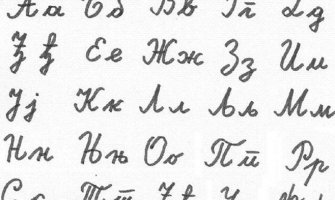 А а Б б В в Г г Д д
Ђ ђ Е е Ж ж З з И и
Ј ј К к Л л Љ љ М м
Н н Њ њ О о П п Р р
С с Т т Ћ ћ У